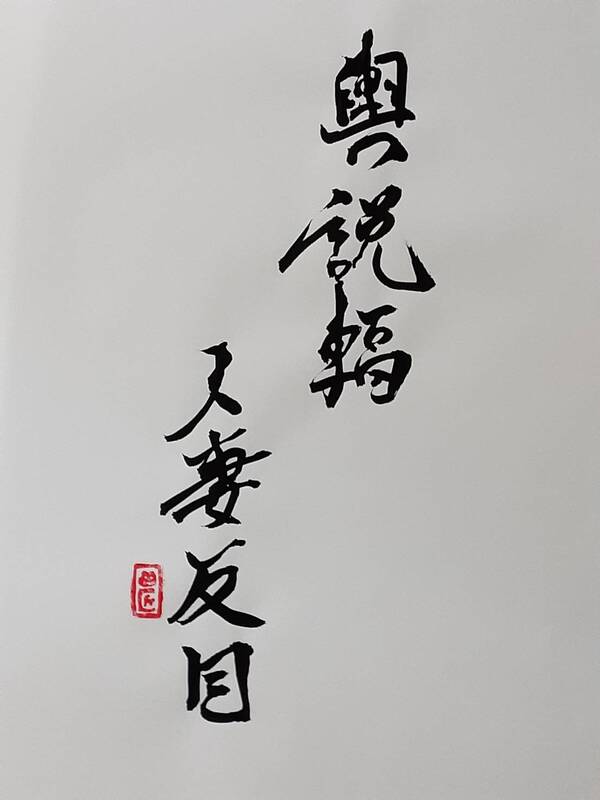 輿說輻
夫妻反目